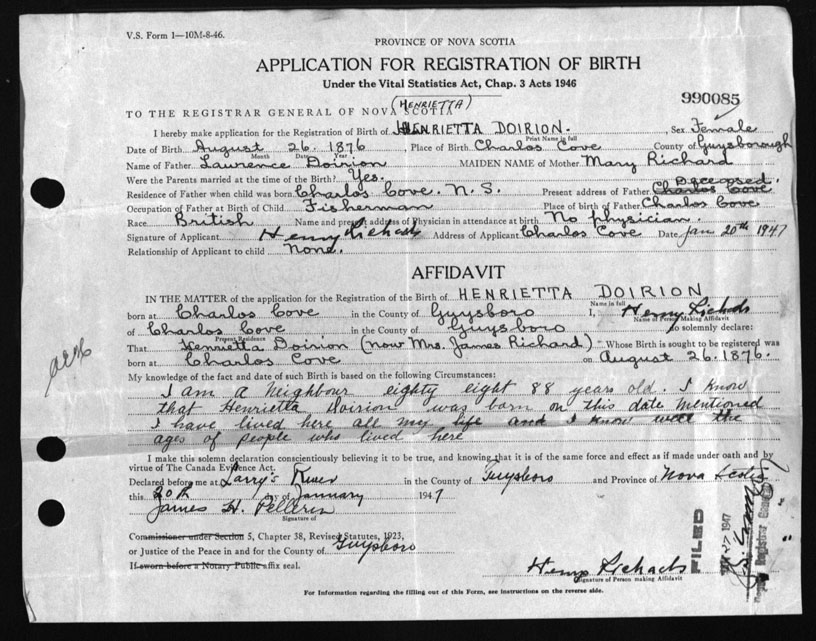 V.S. Form 1—10M-8-46.
PROVINCE OF NOVA SCOTIA
APPLICATION FOR REGISTRATION OF BIRTH
Under the Vital Statistics Act, Chap. 3 Acts 1946
990085
(HENRIETTA)
TO THE REGISTRAR GENERAL OF NOVA SCOTIA
I hereby make application for the Registration of Birth of HENRIETTA DOIRION. Sex Female
Print Name in full
Date of Birth August 26. 1876, Place of Birth Charlos Cove County of Guysborough
Month Date Year
Name of Father Laurence Doirion MAIDEN NAME of Mother Mary Richard
Were the Parents married at the time of the Birth? Yes. Deceased.
Residence of Father when child was born Charlos Cove. N.S. Present address of Father Charlos Cove
Occupation of Father at Birth of Child Fisherman Place of birth of Father Charlos Cove
Race British Name and present address of Physician in attendance at birth No physician.
Signature of Applicant Henry Richards Address of Applicant Charlos Cove Date Jan 20th 1947
Relationship of Applicant to child None.
AFFIDAVIT
IN THE MATTER of the application for the Registration of the Birth of HENRIETTA DOIRION
Name in full
born at Charlos Cove in the County of Guysboro I, Henry Richards
Name of Person Making Affidavit
of Charlos Cove in the County of Guysboro do solemnly declare:
Present Residence
That Henrietta Doirion (now Mrs. James Richard) Whose Birth is sought to be registered was
born at Charlos Cove on August 26. 1876.
My knowledge of the fact and date of such Birth is based on the following Circumstances:
I am a Neighbour eighty eight 88 years old. I know
that Henrietta Doirion was born on this date mentioned
I have lived here all my life and I know well the
ages of people who lived here
I make this solemn declaration conscientiously believing it to be true, and knowing that it is of the same force and effect as if made under oath and by
virtue of The Canada Evidence Act.
Declared before me at Larry's River in the County of Guysboro and Province of Nova Scotia
this 20th day of January 1947
James H. Pellerin
Signature of
Commissioner under Section 5, Chapter 38, Revised Statutes, 1923,
or Justice of the Peace in and for the County of Guysboro
If sworn before a Notary Public affix seal.
Henry Richards
Signature of Person making Affidavit
FILED
27 1947
Registrar General
For Information regarding the filling out of this Form, see instructions on the reverse side.